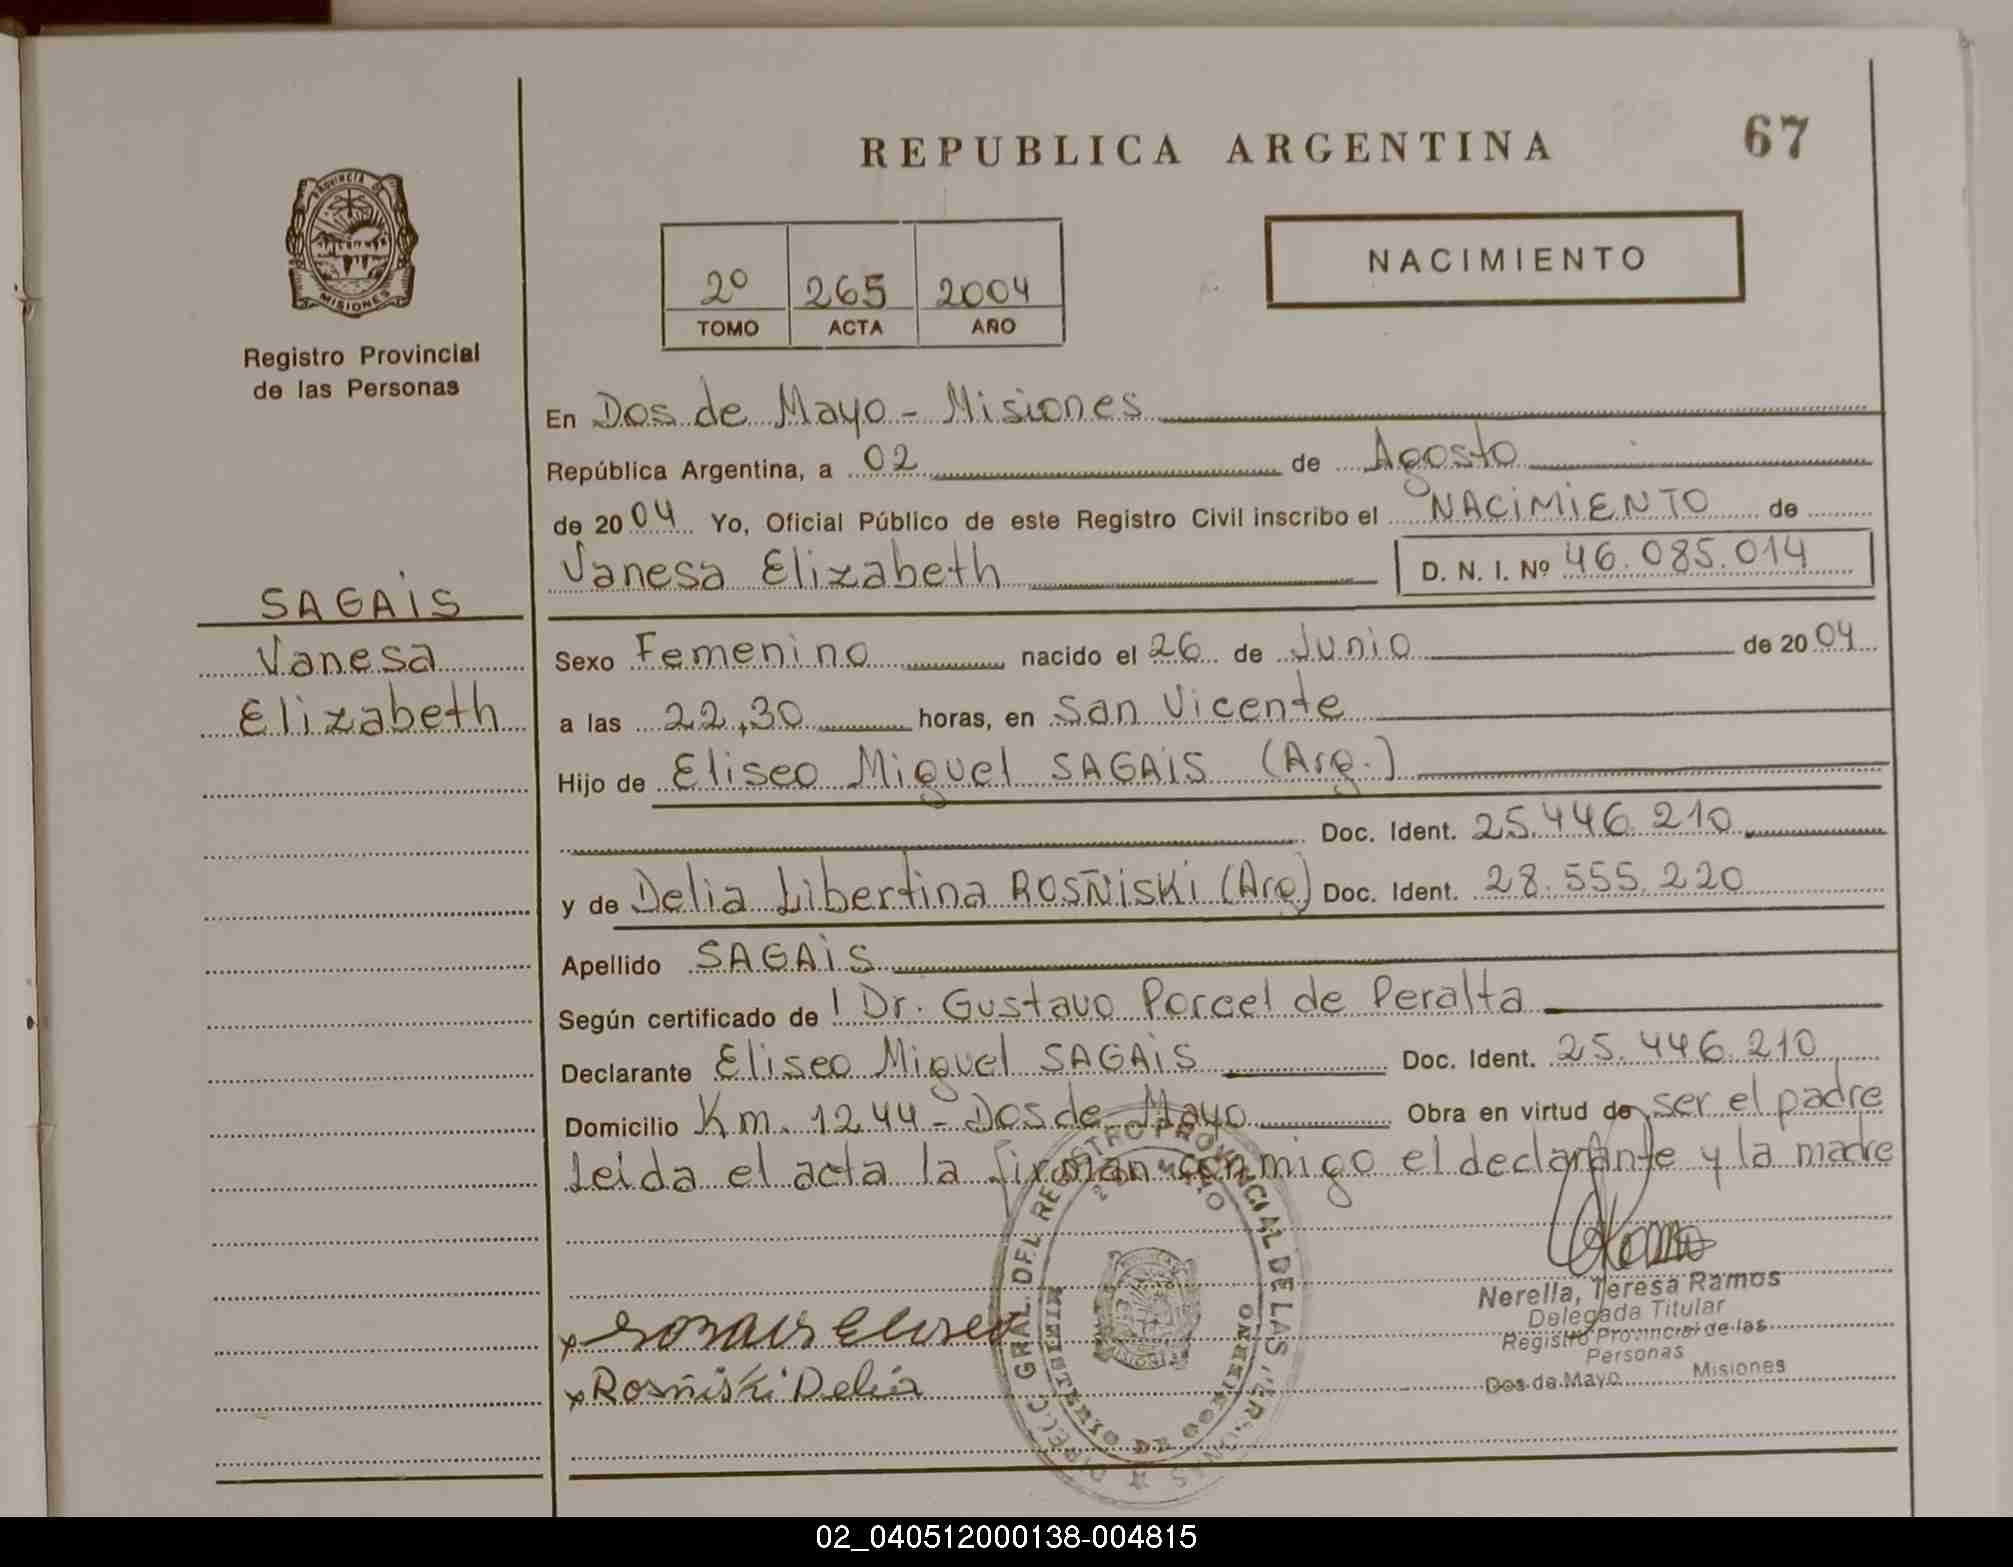 REPUBLICA ARGENTINA
67
PROVINCIA DE
MISIONES
Registro Provincial
de las Personas
2º 265 2004
TOMO ACTA AÑO
NACIMIENTO
En Dos de Mayo - Misiones
República Argentina, a 02 de Agosto
de 2004 Yo, Oficial Público de este Registro Civil inscribo el NACIMIENTO de
Vanesa Elizabeth D. N. I. Nº 46.085.014
SAGAIS
Vanesa
Elizabeth
Sexo Femenino nacido el 26 de Junio de 2004
a las 22,30 horas, en San Vicente
Hijo de Eliseo Miguel SAGAIS (Arg.)
Doc. Ident. 25.446.210
y de Delia Libertina ROSÑISKI (Arg) Doc. Ident. 28.555.220
Apellido SAGAIS
Según certificado de l Dr. Gustavo Porcel de Peralta
Declarante Eliseo Miguel SAGAIS Doc. Ident. 25.446.210
Domicilio Km. 1244 - Dos de Mayo Obra en virtud de ser el padre
Leida el acta la firman conmigo el declarante y la madre
Nerella, Teresa Ramos
Delegada Titular
Registro Provincial de las
Personas
Dos de Mayo Misiones
x Eliseo
x Rosñiski Delia
GRAL. DEL REGISTRO PROVINCIAL DE LAS
MINISTERIO DE GOBIERNO
02_040512000138-004815